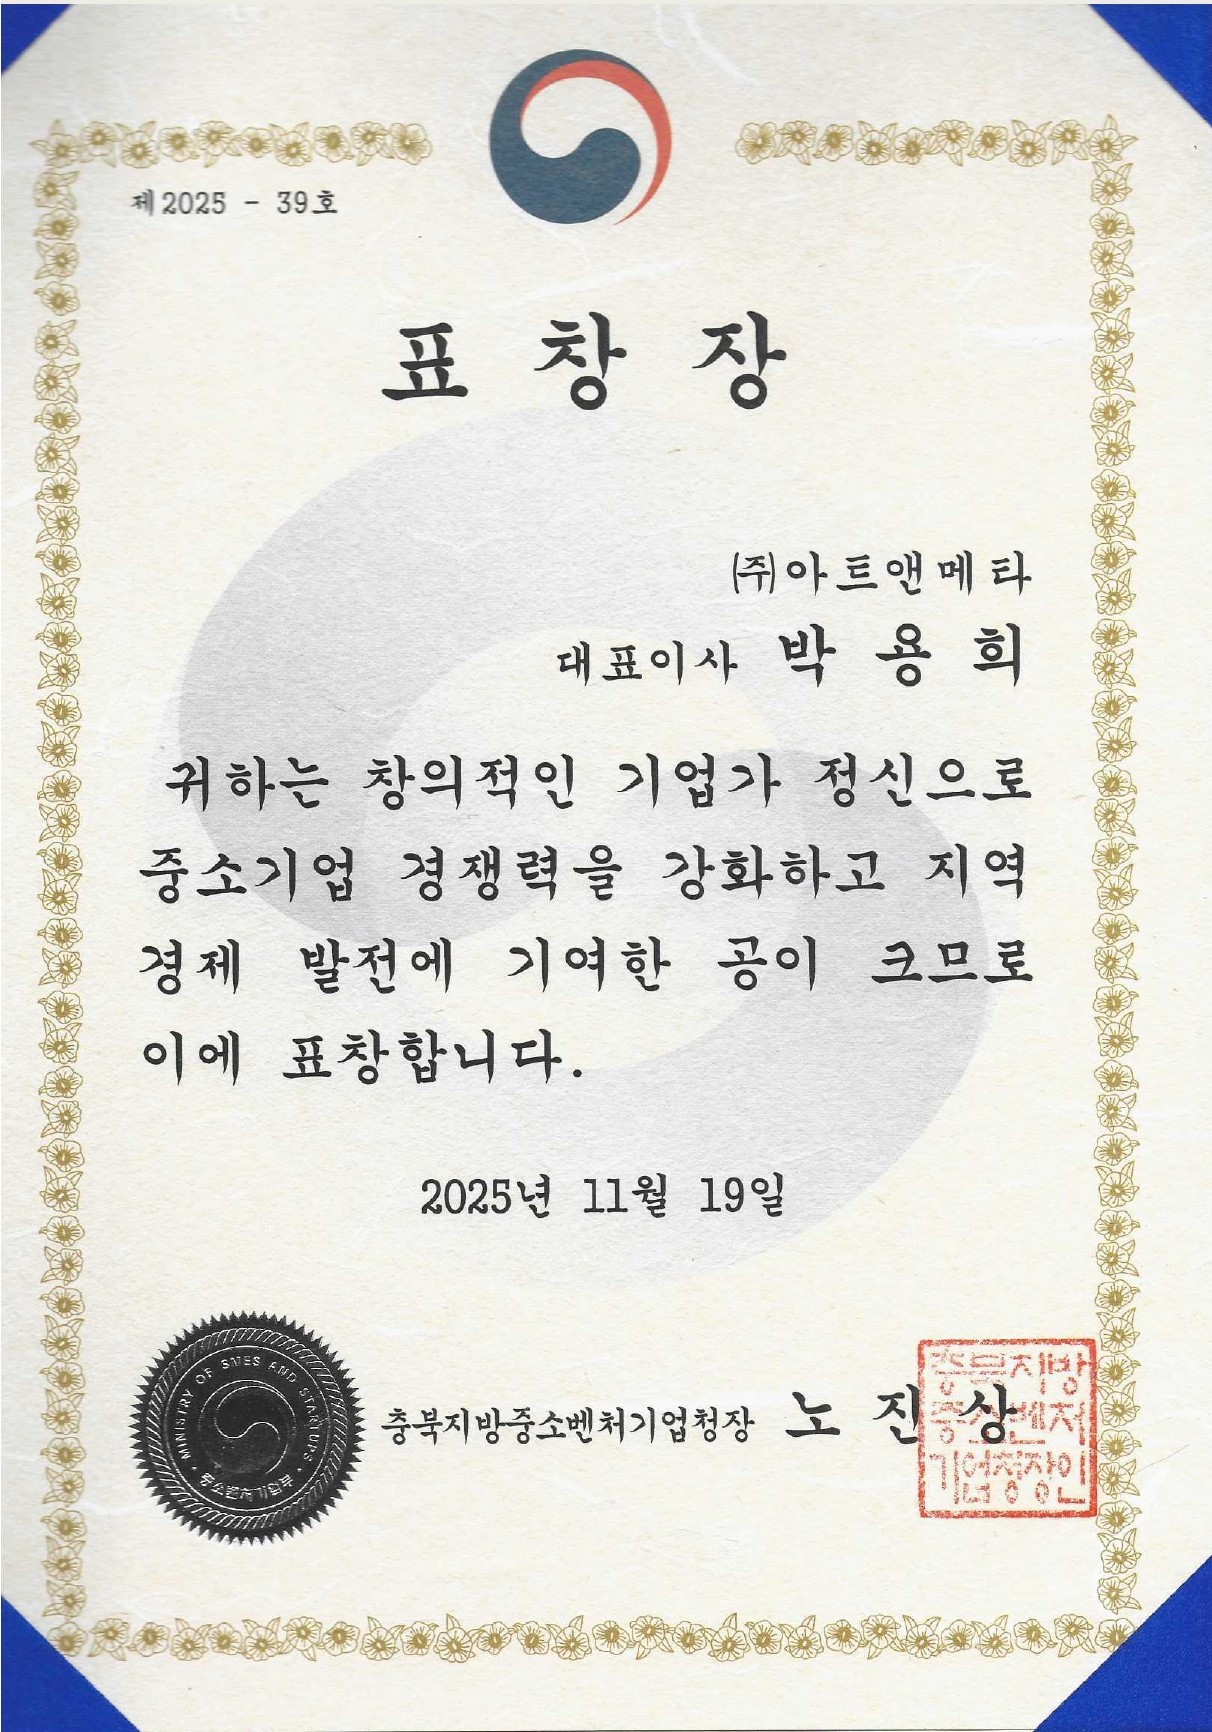 제2025 - 39호
표 창 장
㈜아트앤메타
대표이사 박 용 희
귀하는 창의적인 기업가 정신으로
중소기업 경쟁력을 강화하고 지역
경제 발전에 기여한 공이 크므로
이에 표창합니다.
2025년 11월 19일
MINISTRY OF SMES AND STARTUPS
중소벤처기업부
충북지방중소벤처기업청장 노 진 상
충북지방
중소벤처
기업청장인